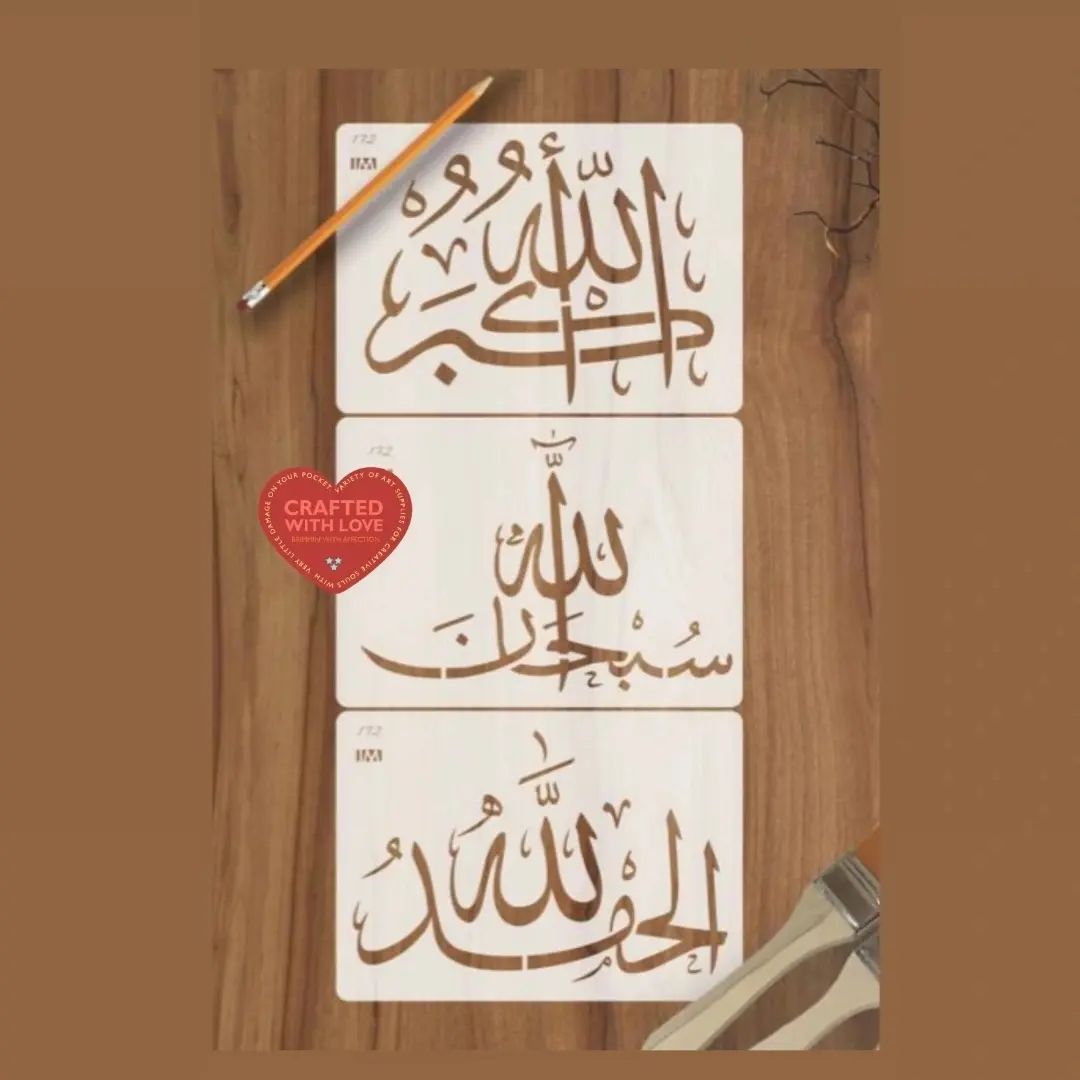 172
IM
اللهُ أَكْبَرُ
172
CRAFTED
WITH LOVE
BRIMMING WITH AFFECTION
VARIETY OF ART SUPPLIES FOR CREATIVE SOULS WITH VERY LITTLE DAMAGE ON YOUR POCKET
سُبْحَانَ اللّٰه
172
IM
الْحَمْدُ لِلّٰهِ